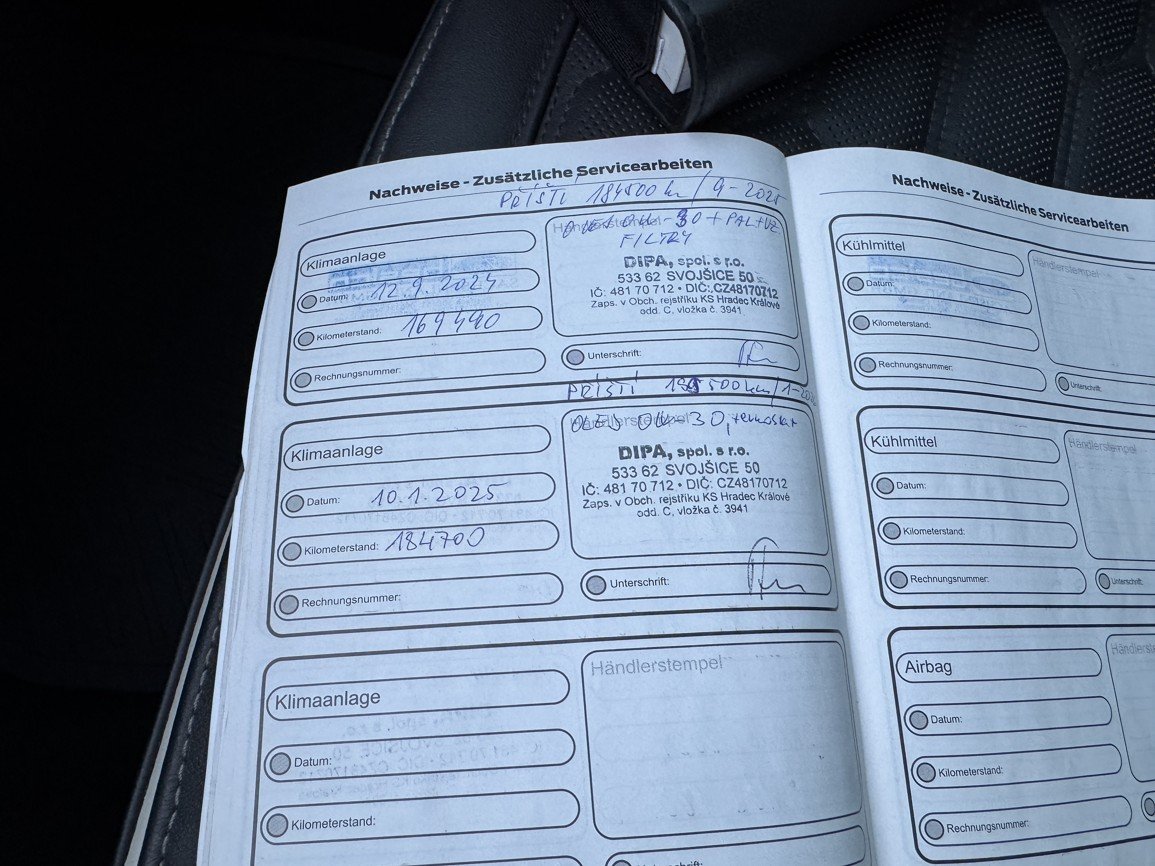 Nachweise - Zusätzliche Servicearbeiten
PŘÍŠTÍ 184500 km / 9 - 2025
Klimaanlage
Datum: 12.9.2024
Kilometerstand: 169440
Rechnungsnummer:
Händlerstempel
OW-30 + PAL + VZ
FILTRY
DIPA, spol. s r.o.
533 62 SVOJŠICE 50
IČ: 481 70 712 • DIČ: CZ48170712
Zaps. v Obch. rejstříku KS Hradec Králové
odd. C, vložka č. 3941
Unterschrift:
PŘÍŠTÍ
Klimaanlage
Datum: 10.1.2025
Kilometerstand: 184700
Rechnungsnummer:
Händlerstempel
OLEJ OW-30, termostat
DIPA, spol. s r.o.
533 62 SVOJŠICE 50
IČ: 481 70 712 • DIČ: CZ48170712
Zaps. v Obch. rejstříku KS Hradec Králové
odd. C, vložka č. 3941
Unterschrift:
Klimaanlage
Datum:
Kilometerstand:
Händlerstempel
Nachweise - Zusätzliche Servicearbeiten
Kühlmittel
Datum:
Kilometerstand:
Rechnungsnummer:
Händlerstempel
Unterschrift:
Kühlmittel
Datum:
Kilometerstand:
Rechnungsnummer:
Händlerstempel
Unterschrift:
Airbag
Datum:
Kilometerstand:
Rechnungsnummer: